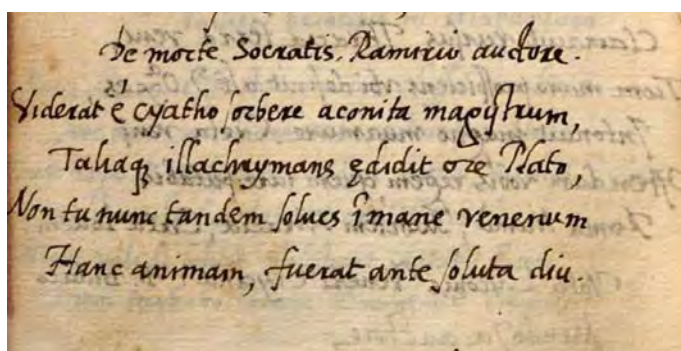 De morte Socratis. Ramirio auctore.
Viderat é cyatho sorbere aconita magystrum,
Taliaq; illachrymans ędidit ore Plato,
Non tu nunc tandem solues îmane venenum
Hanc animam, fuerat ante soluta diu.